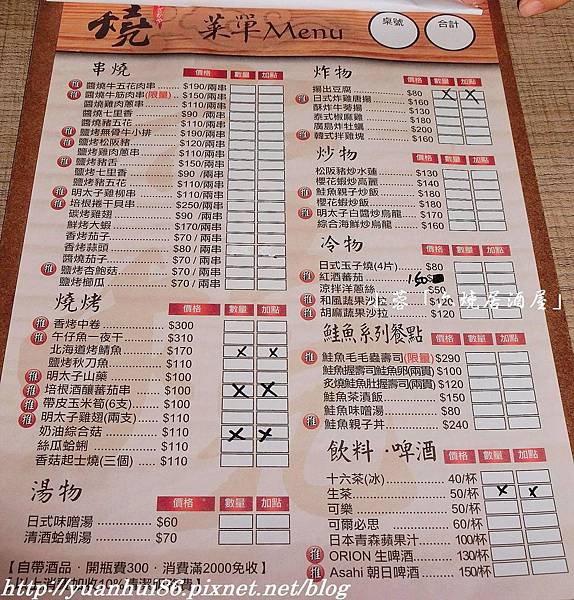 燒 菜單Menu 桌號 合計
串燒 價格 數量 加點
推 醬燒牛五花肉串 $190/兩串
推 醬燒牛筋肉串(限量) $150/兩串
醬燒雞肉蔥串 $110/兩串
醬燒七里香 $90/兩串
醬燒豬五花 $110/兩串
推 鹽烤無骨牛小排 $190/兩串
推 鹽烤松阪豬 $120/兩串
鹽烤雞肉蔥串 $110/兩串
推 鹽烤豬舌 $150/兩串
鹽烤七里香 $90/兩串
鹽烤豬五花 $110/兩串
推 明太子雞柳串 $110/兩串
推 培根捲干貝串 $250/兩串
碳烤雞翅 $90/兩串
鮮烤大蝦 $170/兩串
香烤茄子 $70/兩串
香烤蒜頭 $80/兩串
醬燒茄子 $70/兩串
推 鹽烤杏鮑菇 $70/兩串
鹽烤櫛瓜 $70/兩串
燒烤 價格 數量 加點
推 香烤中卷 $300
推 午仔魚一夜干 $310
北海道烤鯖魚 $170
鹽烤秋刀魚 $110
推 明太子山藥 $100
推 培根酒釀蕃茄串 $100
推 帶皮玉米筍(6支) $100
推 明太子雞翅(兩支) $110
奶油綜合菇 $110
絲瓜蛤蜊 $110
香菇起士燒(三個) $110
湯物 價格 數量 加點
日式味噌湯 $60
清酒蛤蜊湯 $70
【自帶酒品．開瓶費300．消費滿2000免收】
炸物 價格 數量 加點
揚出豆腐 $80
推 日式炸雞唐揚 $160
酥炸牛蒡揚 $130
泰式椒麻雞 $180
廣島炸牡蠣 $200
推 韓式炸雞塊 $160
炒物 價格 數量 加點
松阪豬炒水蓮 $130
櫻花蝦炒高麗 $140
推 鮭魚親子炒飯 $180
櫻花蝦炒飯 $160
推 明太子白醬炒烏龍 $170
綜合海鮮炒烏龍 $160
冷物 價格 數量 加點
日式玉子燒(4片) $80
推 紅酒蕃茄 150
涼拌洋蔥絲 $50
推 和風蔬果沙拉 $120
推 胡麻蔬果沙拉 $120
鮭魚系列餐點 價格 數量 加點
推 鮭魚毛毛蟲壽司(限量) $290
鮭魚握壽司鮭魚卵(兩貫) $100
炙燒鮭魚肚握壽司(兩貫) $120
鮭魚茶漬飯 $150
鮭魚味噌湯 $80
推 鮭魚親子丼 $240
飲料．啤酒 價格 數量 加點
十六茶(冰) 40/杯
生茶 50/杯
可樂 50/杯
可爾必思 60/杯
日本青森蘋果汁 100/杯
推 ORION 生啤酒 130/杯
推 Asahi 朝日啤酒 150/杯
http://yuanhui86.pixnet.net/blog